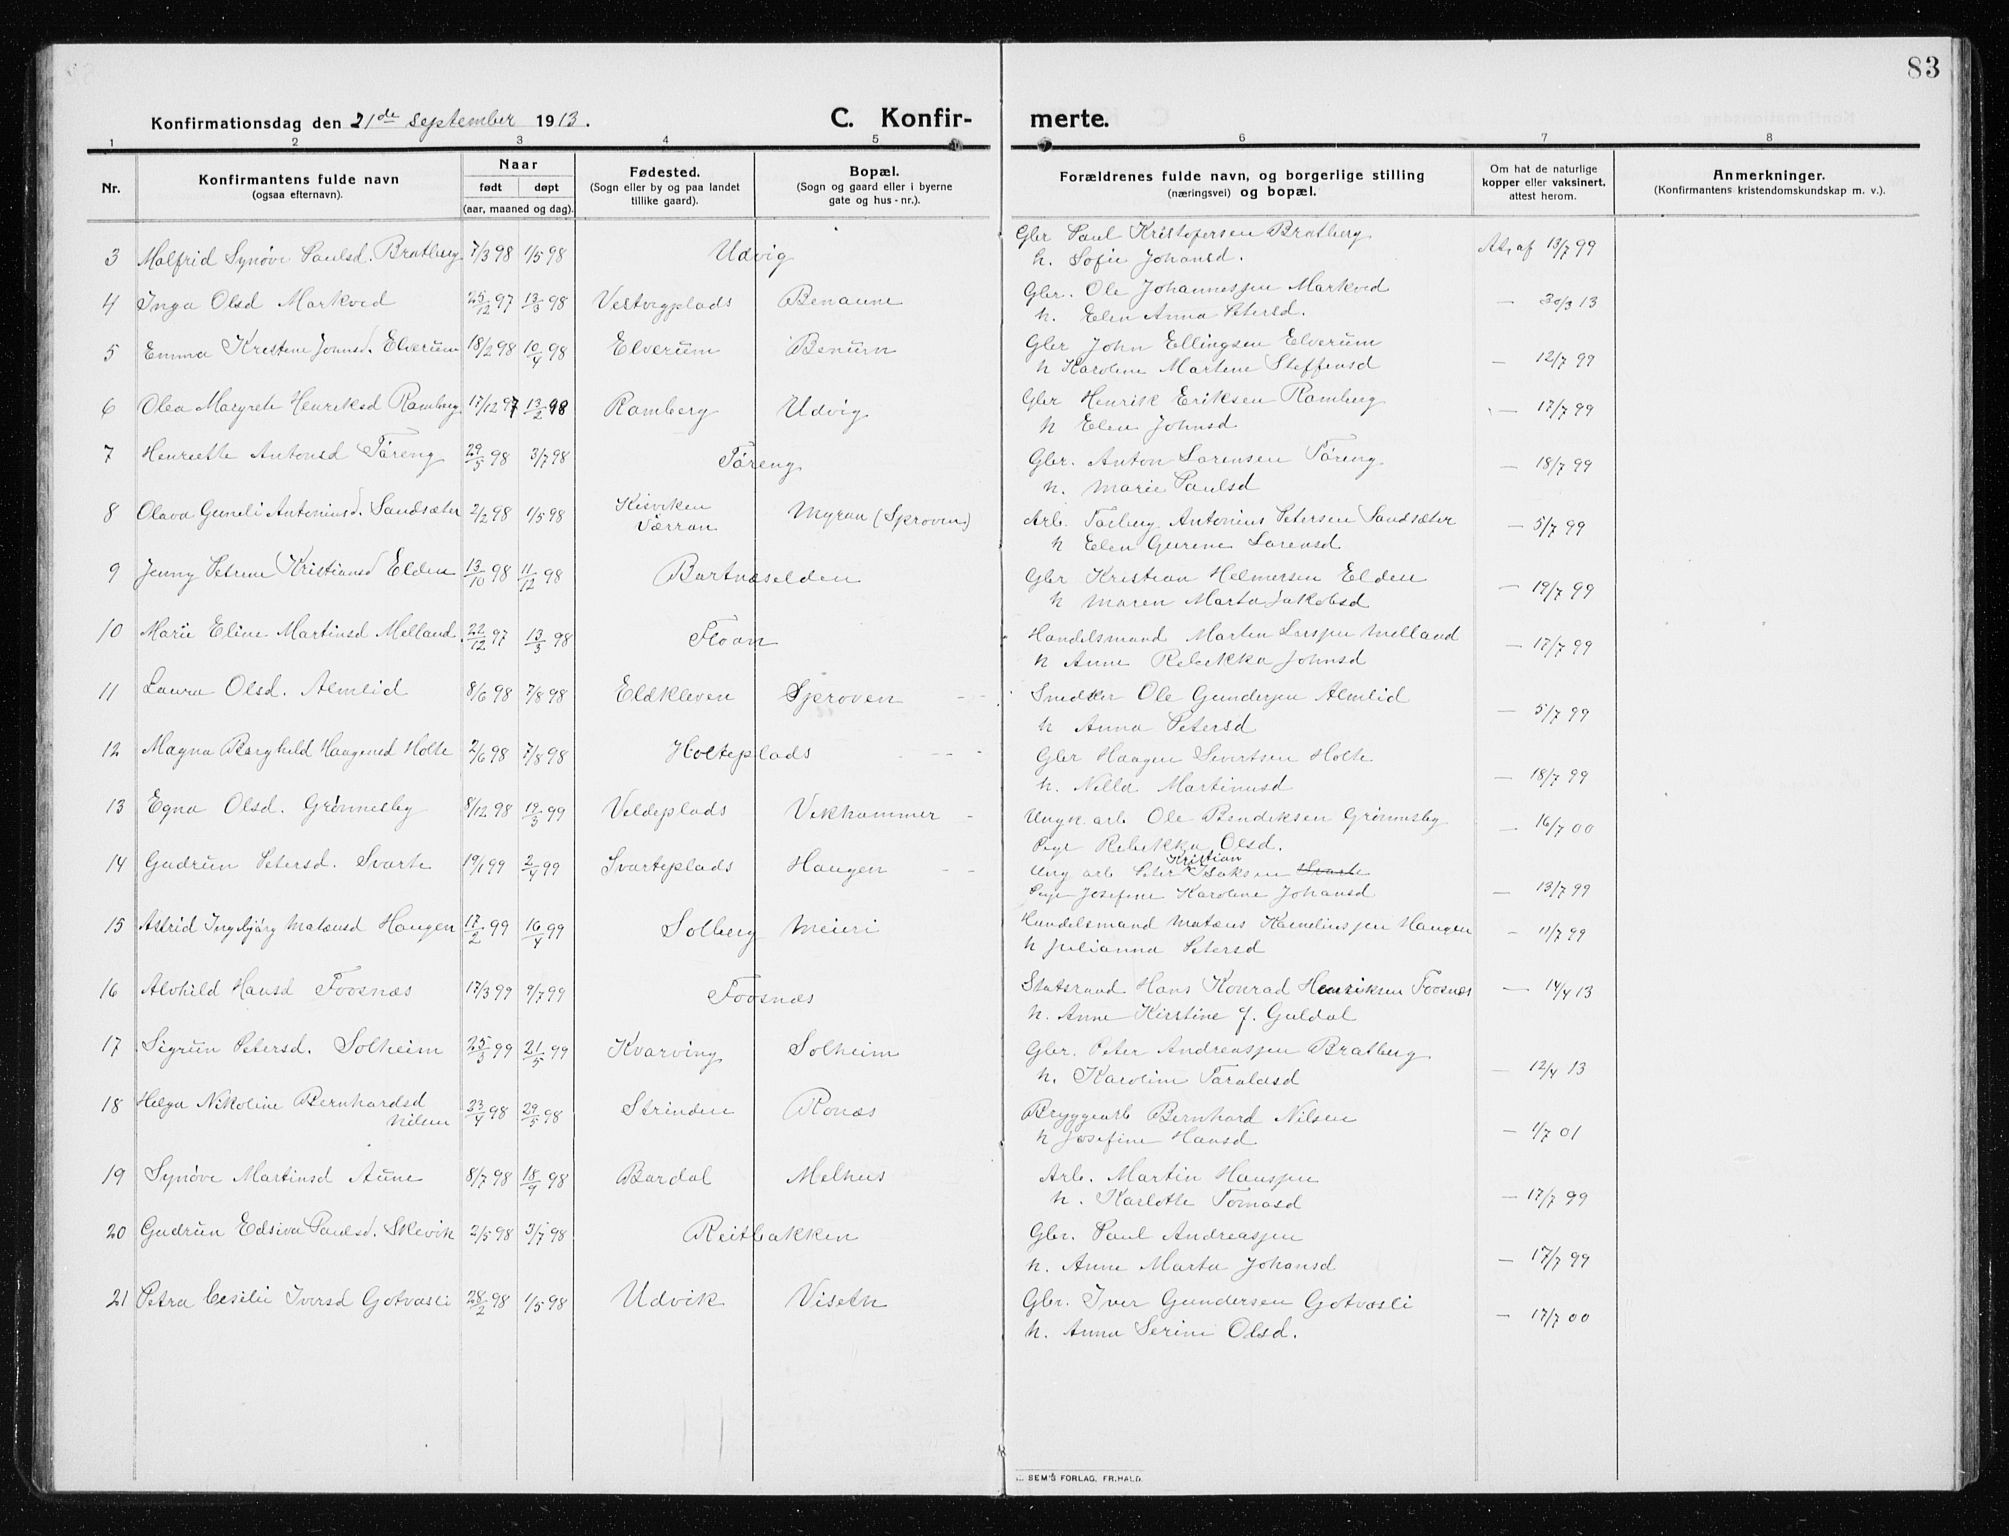 83
Konfirmationsdag den 21de september 1913.
C. Konfirmerte.
1 2 3 4 5 6 7 8
Nr.
Konfirmantens fulde navn
(ogsaa efternavn).
Naar
født døpt
(aar, maaned og dag).
Fødested.
(Sogn eller by og paa landet
tillike gaard).
Bopæl.
(Sogn og gaard eller i byerne
gate og hus-nr.).
Forældrenes fulde navn, og borgerlige stilling
(næringsvei) og bopæl.
Om hat de naturlige
kopper eller vaksinert.
attest herom.
Anmerkninger.
(Konfirmantens kristendomskundskap m. v.).
3 Malfrid Synøve Paulsd. Bratberg 7/3 98 1/5 98 Udvig Gbr Paul Kristofersen Bratberg
h. Sofie Johansd. At. af 13/7 99
4 Inga Olsd Markved 25/12 97 13/3 98 Vestvigplads Benaune Gbr. Ole Johannessen Markved
h. Elen Anna Petersd. — 30/3 13
5 Emma Kristene Johnsd. Elverum 18/2 98 10/4 98 Elverum Benum Gbr John Ellingsen Elverum
h Karoline Martene Steffensd — 12/7 99
6 Olea Margrete Henriksd Ramberg 17/12 97 13/2 98 Ramberg Udvig Gbr Henrik Eriksen Ramberg
h Elen Johnsd — 17/7 99
7 Henriette Antonsd Føreng 29/5 98 3/7 98 Føreng Gbr. Anton Lorensen Føreng.
h. Marie Paulsd — 18/7 99
8 Olava Guneli Antoniusd. Sandsæter 2/2 98 1/5 98 Kisviken
Værran Myran (Sproven) Arb. Antonius Petersen Sandsæter
h Elen Gurine Lorensd — 5/7 99
9 Jenny Petrine Kristiansd Elden 13/10 98 11/12 98 Bartnæselden Gbr Kristian Helmersen Elden
h Maren Marta Jakobsd — 19/7 99
10 Marie Eline Martinsd Melland 22/12 97 13/3 98 Floan Handelsmand Martin Larssen Melland
h Anne Rebekka Johnsd — 17/7 99
11 Laura Olsd. Almlid 8/6 98 7/8 98 Eldkleven Sproven Snedker Ole Gundersen Almlid
h Anna Petersd — 5/7 99
12 Magna Borghild Haagensd Holte 2/6 98 7/8 98 Holteplads Gbr Haagen Sivertsen Holte
h. Nella Martinusd — 18/7 99
13 Egna Olsd. Grønnesby 8/12 98 19/3 99 Veldeplads Vikhammer Ungk. arb. Ole Bendiksen Grønnesby
Pige Rebekka Olsd. — 16/7 00
14 Gudrun Petersd. Svarte 19/1 99 2/4 99 Svarteplads Haugen Ung arb Peter Kristian Isaksen Svarte
Pige Josefine Karoline Johansd — 13/7 99
15 Astrid Ingebjørg Matæusd Haugen 17/2 99 16/4 99 Solberg Meieri Handelsmand Matæus Karneliussen Haugen
h Julianna Petersd — 11/7 99
16 Alvhild Hansd Foosnæs 17/3 99 9/7 99 Foosnæs Statsraad Hans Konrad Henriksen Foosnæs
h. Anne Kirstine f. Guldal — 14/4 13
17 Sigrun Petersd. Solheim 25/3 99 21/5 99 Kvarving Solheim Gbr. Peter Andreassen Bratberg
h. Karoline Taraldsd — 12/4 13
18 Helga Nikoline Bernhardsd
Nilsen 23/4 98 29/5 98 Strinden Ronæs Bryggearb Bernhard Nilsen
h Josefine Hansd — 1/7 01
19 Synøve Martinsd Aune 8/7 98 18/9 98 Bardal Melhus Arb. Martin Hanssen
h. Karlotte Tomasd — 17/7 99
20 Gudrun Edsiva Paulsd. Skevik 2/5 98 3/7 98 Reitbakken Gbr. Paul Andreassen
h. Anne Marta Johansd — 17/7 99
21 Petra Cesilie Iversd Gotvasli 28/2 98 1/5 98 Udvik Viseth Gbr. Iver Gundersen Gotvasli
h. Anna Serine Olsd. — 17/7 00
SEM'S FORLAG, FR.HALD.